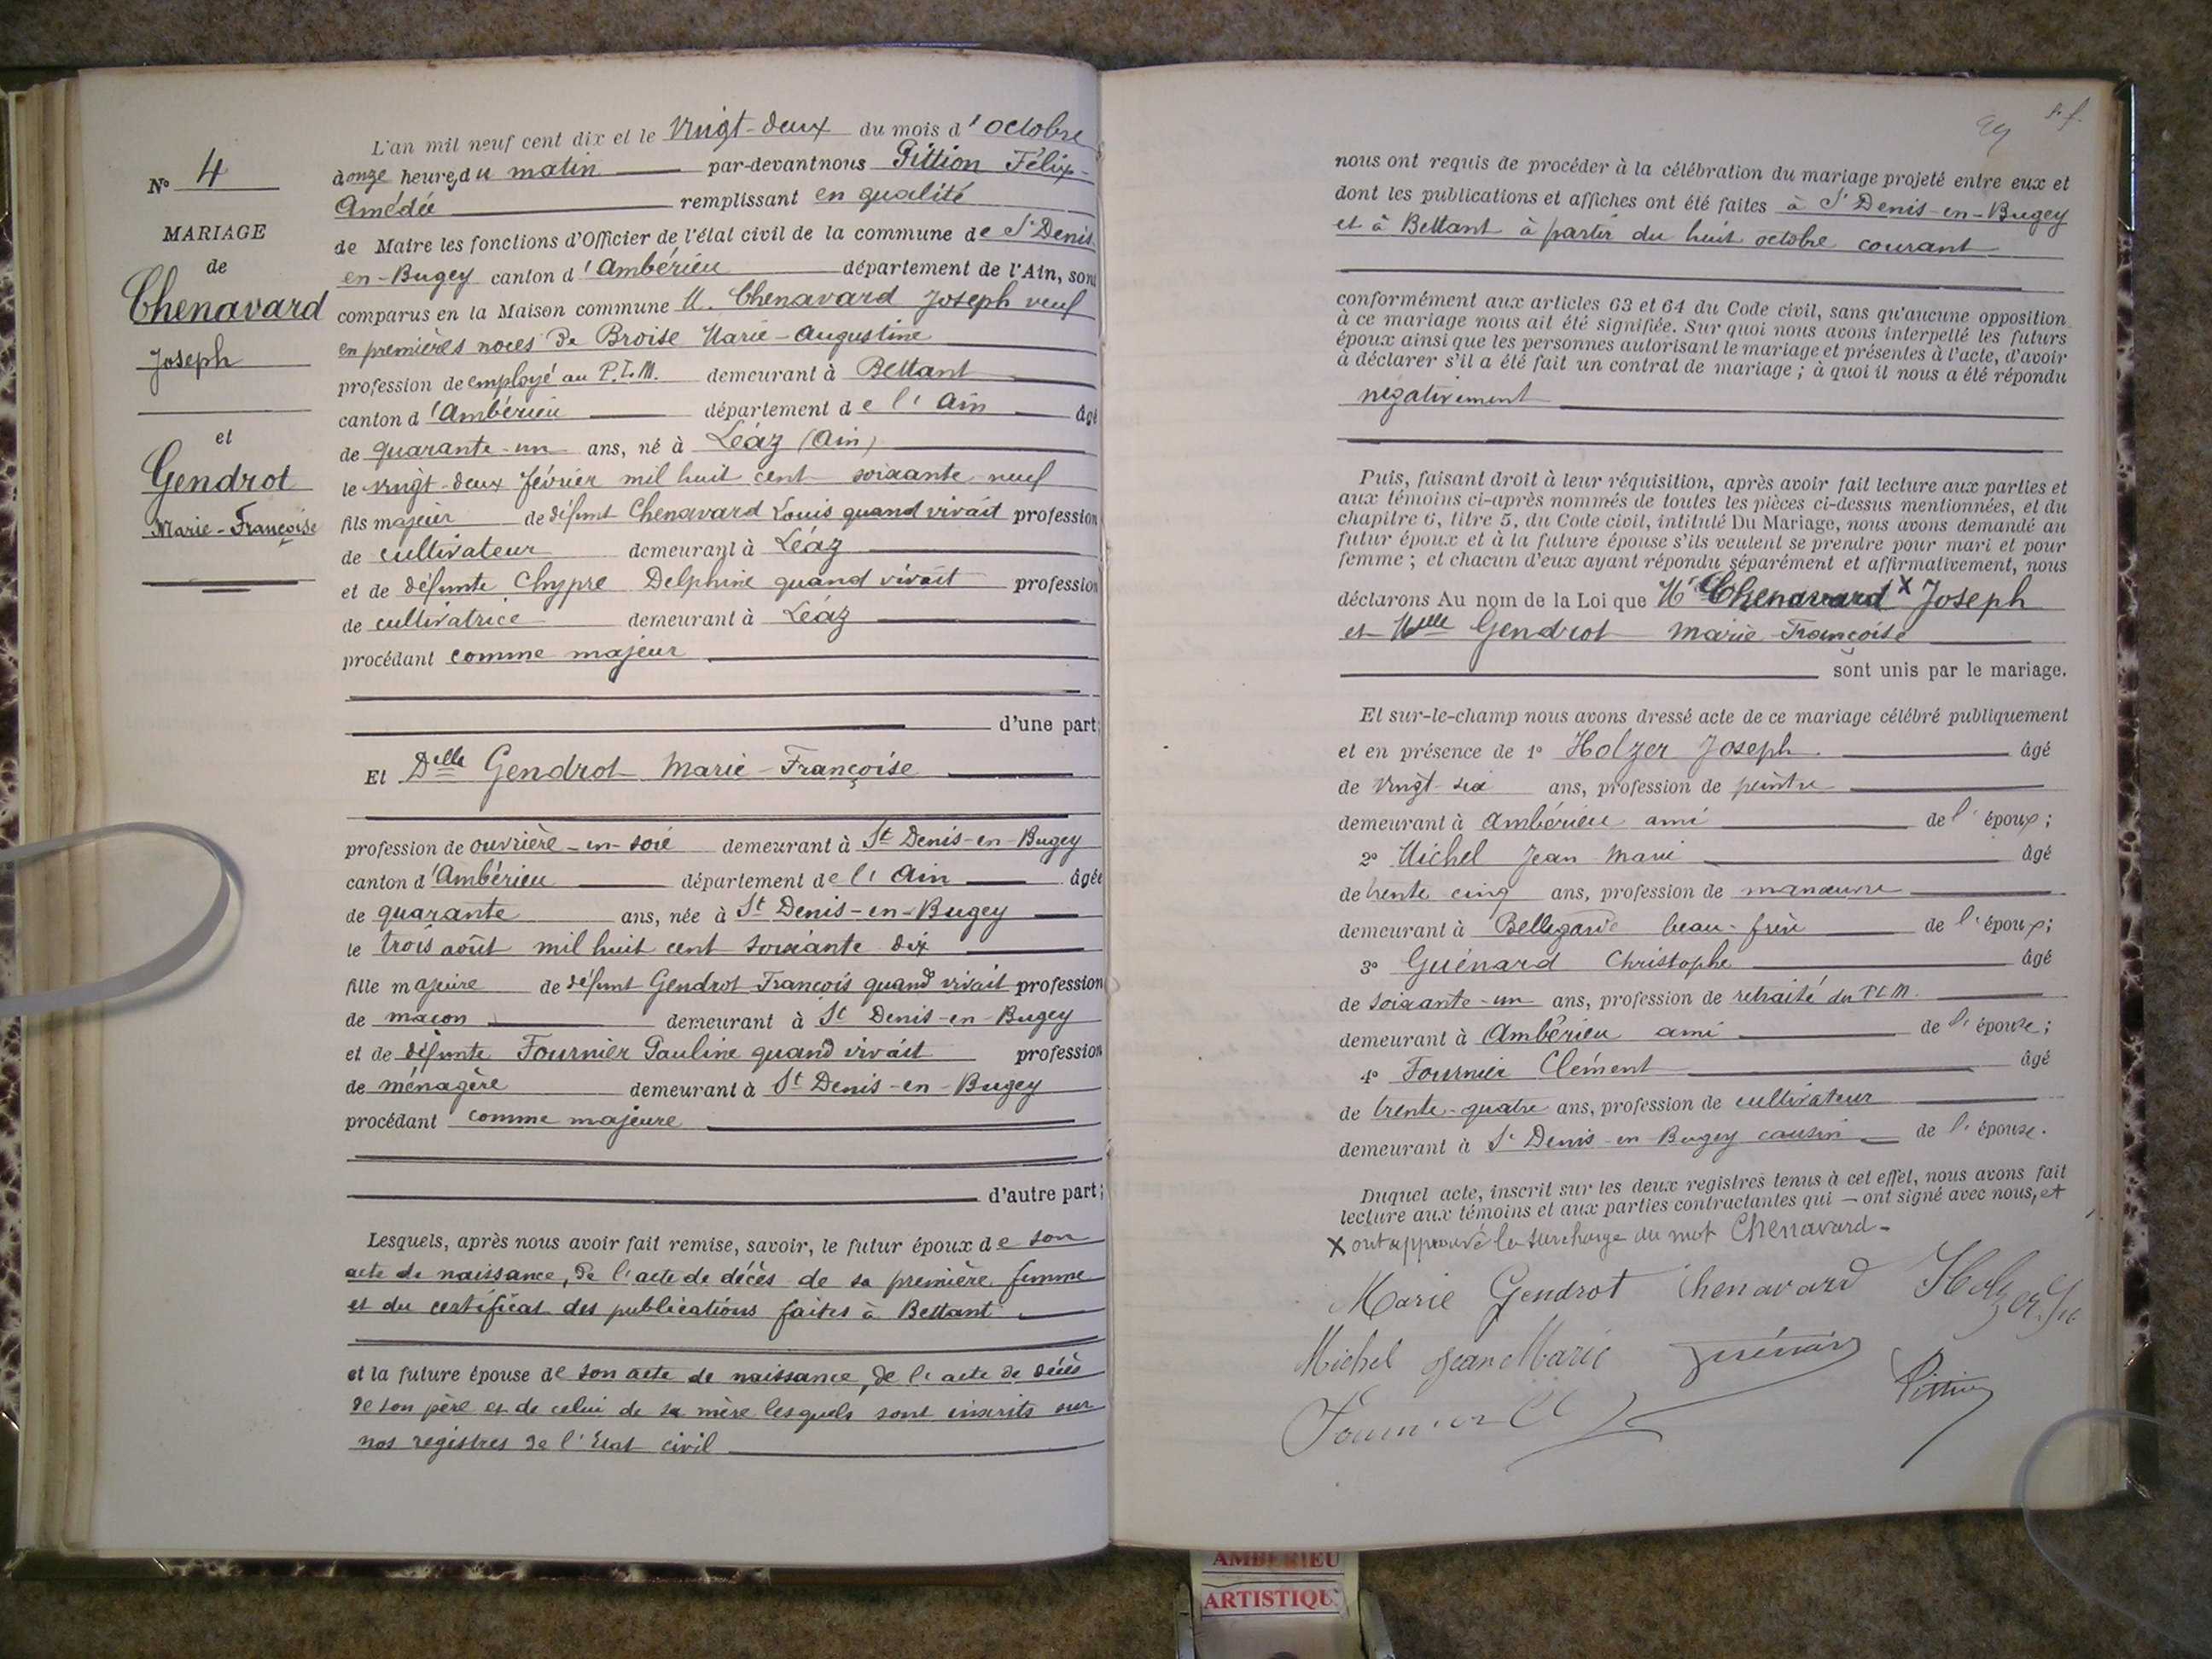 N° 4
MARIAGE
de
Chenavard
Joseph
et
Gendrot
Marie-Françoise
L'an mil neuf cent dix et le vingt-deux du mois d'octobre
à onze heures du matin par-devant nous Pittion Félix-
Amédée remplissant en qualité
de Maire les fonctions d'Officier de l'état civil de la commune de St Denis
en-Bugey canton d'Ambérieu département de l'Ain, sont
comparus en la Maison commune M. Chenavard Joseph veuf
en premières noces de Broise Marie-Augustine
profession de employé au P.L.M. demeurant à Bettant
canton d'Ambérieu département de l'Ain âgé
de quarante-un ans, né à Léaz (Ain)
le vingt-deux février mil huit cent soixante neuf
fils majeur de défunt Chenavard Louis quand vivait profession
de cultivateur demeurant à Léaz
et de défunte Chypre Delphine quand vivait profession
de cultivatrice demeurant à Léaz
procédant comme majeur
d'une part;
Et Delle Gendrot Marie-Françoise
profession de ouvrière-en-soie demeurant à St Denis-en-Bugey
canton d'Ambérieu département de l'Ain âgée
de quarante ans, née à St Denis-en-Bugey
le trois août mil huit cent soixante dix
fille majeure de défunt Gendrot François quand vivait profession
de maçon demeurant à St Denis-en-Bugey
et de défunte Fournier Pauline quand vivait profession
de ménagère demeurant à St Denis-en-Bugey
procédant comme majeure
d'autre part;
Lesquels, après nous avoir fait remise, savoir, le futur époux de son
acte de naissance, de l'acte de décès de sa première femme
et du certificat des publications faites à Bettant
et la future épouse de son acte de naissance, de l'acte de décès
de son père et de celui de sa mère lesquels sont inscrits sur
nos registres de l'Etat civil
nous ont requis de procéder à la célébration du mariage projeté entre eux et
dont les publications et affiches ont été faites à St Denis-en-Bugey
et à Bettant à partir du huit octobre courant
conformément aux articles 63 et 64 du Code civil, sans qu'aucune opposition
à ce mariage nous ait été signifiée. Sur quoi nous avons interpellé les futurs
époux ainsi que les personnes autorisant le mariage et présentes à l'acte, d'avoir
à déclarer s'il a été fait un contrat de mariage ; à quoi il nous a été répondu
négativement
Puis, faisant droit à leur réquisition, après avoir fait lecture aux parties et
aux témoins ci-après nommés de toutes les pièces ci-dessus mentionnées, et du
chapitre 6, titre 5, du Code civil, intitulé Du Mariage, nous avons demandé au
futur époux et à la future épouse s'ils veulent se prendre pour mari et pour
femme ; et chacun d'eux ayant répondu séparément et affirmativement, nous
déclarons Au nom de la Loi que Mr Chenavard X Joseph
et Melle Gendrot Marie-Françoise
sont unis par le mariage.
Et sur-le-champ nous avons dressé acte de ce mariage célébré publiquement
et en présence de 1° Holzer Joseph âgé
de vingt-six ans, profession de peintre
demeurant à Ambérieu ami de l'époux;
2° Michel Jean Marie âgé
de trente cinq ans, profession de manœuvre
demeurant à Bellegarde beau-frère de l'époux;
3° Guénard Christophe âgé
de soixante-un ans, profession de retraité du PLM.
demeurant à Ambérieu ami de l'épouse;
4° Fournier Clément âgé
de trente-quatre ans, profession de cultivateur
demeurant à St Denis-en-Bugey cousin de l'épouse.
Duquel acte, inscrit sur les deux registres tenus à cet effet, nous avons fait
lecture aux témoins et aux parties contractantes qui – ont signé avec nous, et
X ont approuvé la surcharge du mot Chenavard-
Marie Gendrot Chenavard Holzer
Michel Jean Marie Guénard
Fournier Cl Pittion
AMBERIEU
ARTISTIQU